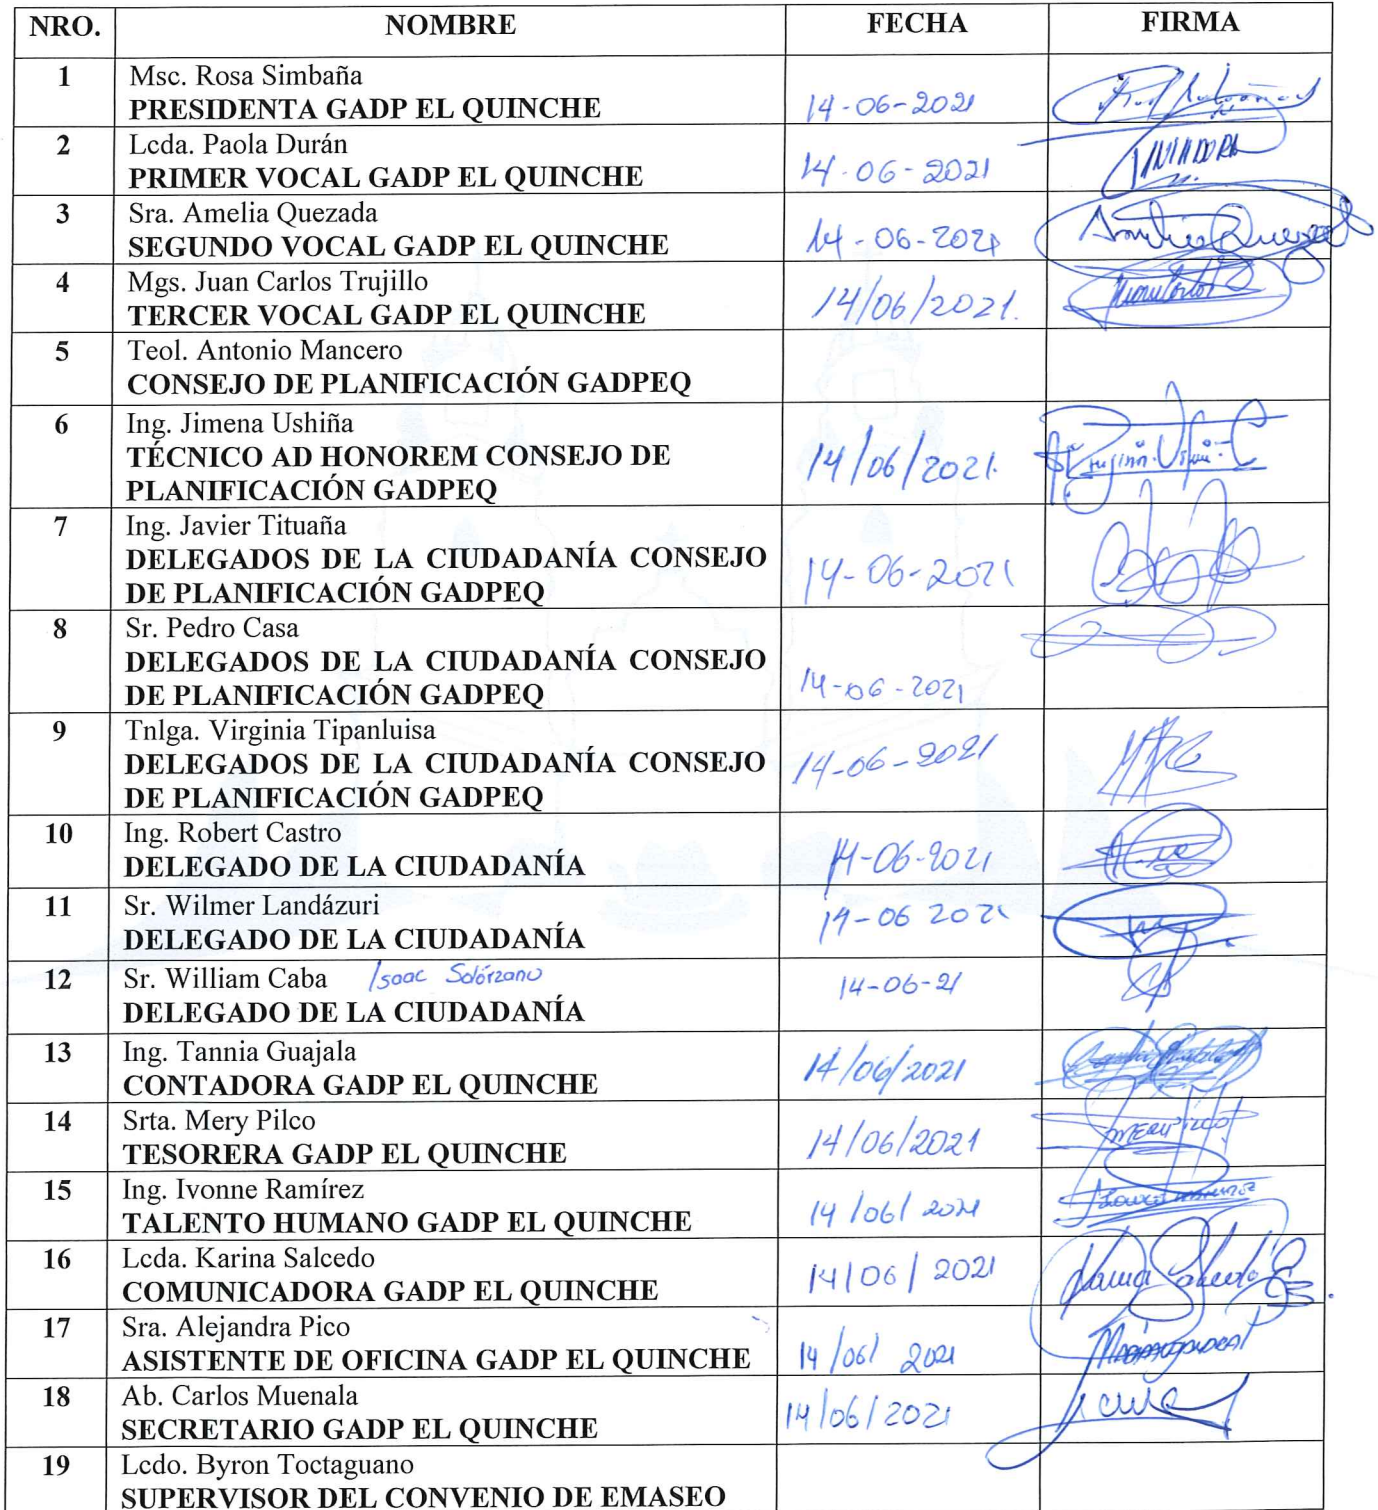 NRO. NOMBRE FECHA FIRMA
1 Msc. Rosa Simbaña
PRESIDENTA GADP EL QUINCHE 14-06-2021
2 Lcda. Paola Durán
PRIMER VOCAL GADP EL QUINCHE 14-06-2021
3 Sra. Amelia Quezada
SEGUNDO VOCAL GADP EL QUINCHE 14-06-2021
4 Mgs. Juan Carlos Trujillo
TERCER VOCAL GADP EL QUINCHE 14/06/2021.
5 Teol. Antonio Mancero
CONSEJO DE PLANIFICACIÓN GADPEQ
6 Ing. Jimena Ushiña
TÉCNICO AD HONOREM CONSEJO DE
PLANIFICACIÓN GADPEQ 14/06/2021.
7 Ing. Javier Tituaña
DELEGADOS DE LA CIUDADANÍA CONSEJO
DE PLANIFICACIÓN GADPEQ 14-06-2021
8 Sr. Pedro Casa
DELEGADOS DE LA CIUDADANÍA CONSEJO
DE PLANIFICACIÓN GADPEQ 14-06-2021
9 Tnlga. Virginia Tipanluisa
DELEGADOS DE LA CIUDADANÍA CONSEJO
DE PLANIFICACIÓN GADPEQ 14-06-2021
10 Ing. Robert Castro
DELEGADO DE LA CIUDADANÍA 14-06-2021
11 Sr. Wilmer Landázuri
DELEGADO DE LA CIUDADANÍA 14-06 2021
12 Sr. William Caba Isaac Solórzano
DELEGADO DE LA CIUDADANÍA 14-06-21
13 Ing. Tannia Guajala
CONTADORA GADP EL QUINCHE 14/06/2021
14 Srta. Mery Pilco
TESORERA GADP EL QUINCHE 14/06/2021 MERY PILCO
15 Ing. Ivonne Ramírez
TALENTO HUMANO GADP EL QUINCHE 14/06/2021
16 Lcda. Karina Salcedo
COMUNICADORA GADP EL QUINCHE 14/06/2021 Karina Salcedo
17 Sra. Alejandra Pico
ASISTENTE DE OFICINA GADP EL QUINCHE 14/06/2021
18 Ab. Carlos Muenala
SECRETARIO GADP EL QUINCHE 14/06/2021
19 Lcdo. Byron Toctaguano
SUPERVISOR DEL CONVENIO DE EMASEO